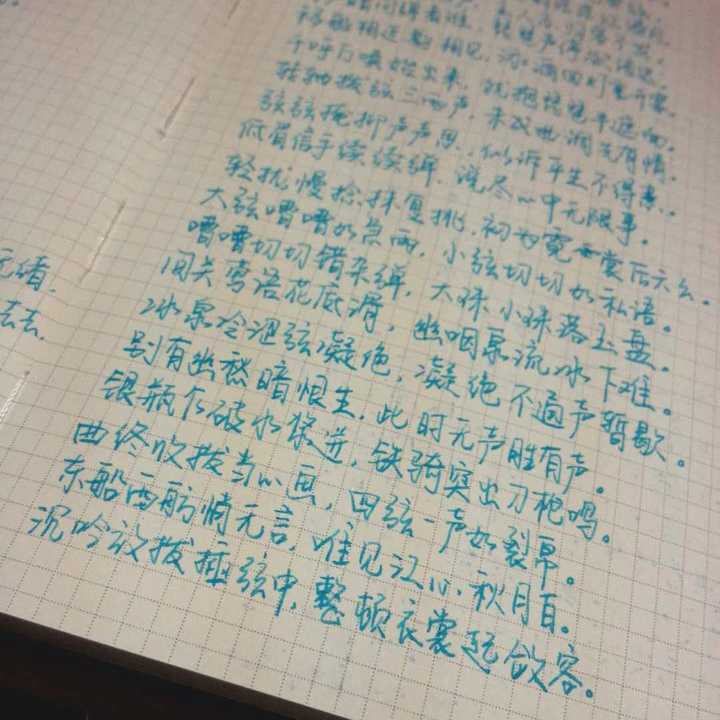 移船相近邀相见，添酒回灯重开宴。
千呼万唤始出来，犹抱琵琶半遮面。
转轴拨弦三两声，未成曲调先有情。
弦弦掩抑声声思，似诉平生不得志。
低眉信手续续弹，说尽心中无限事。
轻拢慢捻抹复挑，初为霓裳后六么。
大弦嘈嘈如急雨，小弦切切如私语。
嘈嘈切切错杂弹，大珠小珠落玉盘。
间关莺语花底滑，幽咽泉流冰下难。
冰泉冷涩弦凝绝，凝绝不通声暂歇。
别有幽愁暗恨生，此时无声胜有声。
银瓶乍破水浆迸，铁骑突出刀枪鸣。
曲终收拨当心画，四弦一声如裂帛。
东船西舫悄无言，唯见江心秋月白。
沉吟放拨插弦中，整顿衣裳起敛容。
去去.